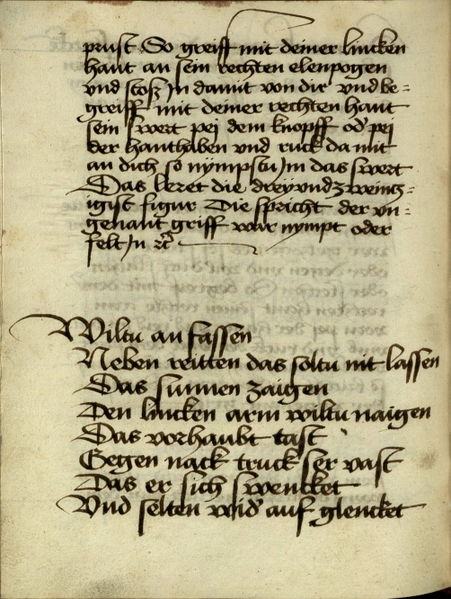 prust So greiff mit deiner lincken
hant an sein rechten elenpogen
vnd stosz in damit von dir vnd be=
greiff mit deiner rechten hant
sein swert pej dem knopff od' pej
der hanthaben vnd ruck da mit
an dich so nympstu im das swert
Das leret die dreyvndzwencz=
igist figur Die spricht der vn=
genant griff war nympt oder
felt in ꝛc̄
Wiltu an fassen
Neben reitten das soltu nit lassen
Das sunnen zaigen
Den lincken arm wiltu naigen
Das vorhaubt tast
Gegen nack truck ser vast
Das er sich swencket
Vnd selten wid' auf glencket